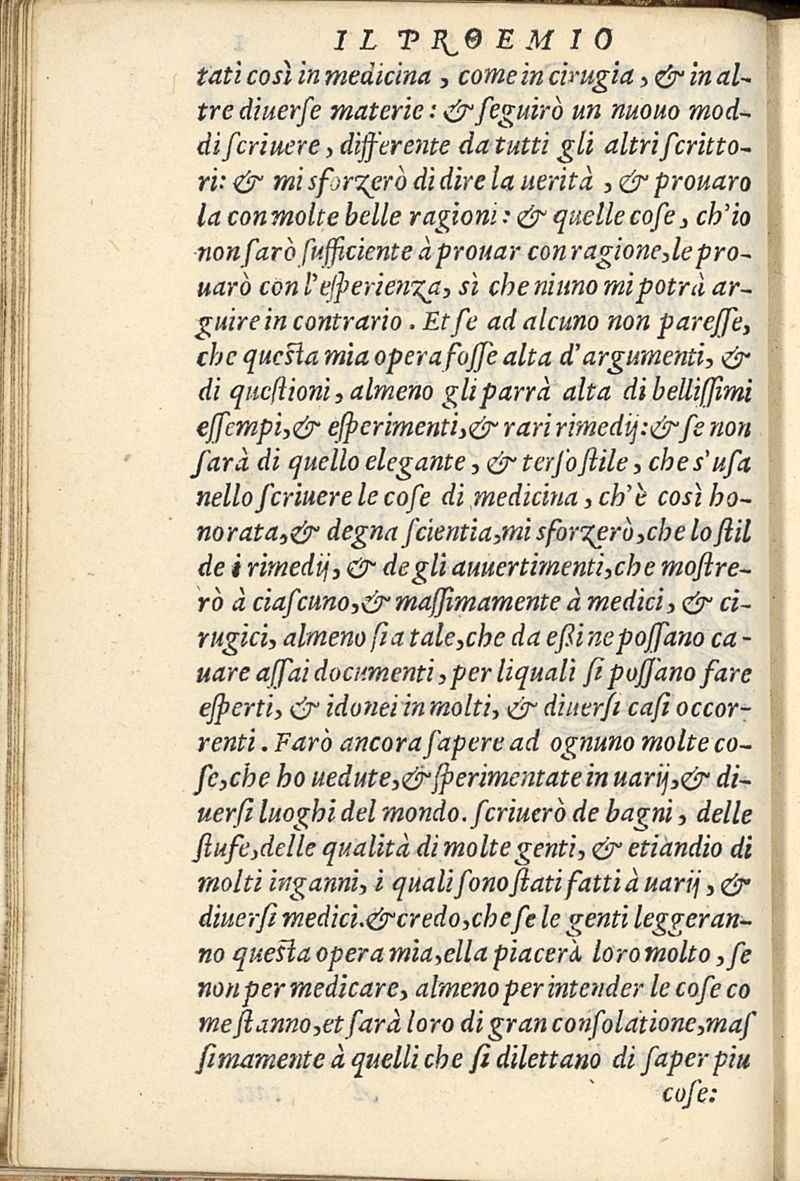 IL PROEMIO
tati così in medicina, come in cirugia, & in al-
tre diuerſe materie: & ſeguirò un nuouo mod-
di ſcriuere, differente da tutti gli altri ſcritto-
ri: & mi sforzerò di dire la uerità, & prouaro
la con molte belle ragioni: & quelle coſe, ch'io
non ſarò ſufficiente à prouar con ragione, le pro-
uarò con l'eſperienza, sì che niuno mi potrà ar-
guire in contrario. Et ſe ad alcuno non pareſſe,
che queſta mia opera foſſe alta d'argumenti, &
di queſtioni, almeno gli parrà alta di belliſſimi
eſſempi, & eſperimenti, & rari rimedij: & ſe non
ſarà di quello elegante, & terſo ſtile, che s'uſa
nello ſcriuere le coſe di medicina, ch'è così ho-
norata, & degna ſcientia, mi sforzerò, che lo ſtil
de i rimedij, & de gli auuertimenti, che moſtre-
rò à ciaſcuno, & maſſimamente à medici, & ci-
rugici, almeno ſia tale, che da eßi ne poſſano ca-
uare aſſai documenti, per li quali ſi poſſano fare
eſperti, & idonei in molti, & diuerſi caſi occor-
renti. Farò ancora ſapere ad ognuno molte co-
ſe, che ho uedute, & ſperimentate in uarij, & di-
uerſi luoghi del mondo. ſcriuerò de bagni, delle
ſtufe, delle qualità di molte genti, & etiandio di
molti inganni, i quali ſono ſtati fatti à uarij, &
diuerſi medici. & credo, che ſe le genti leggeran-
no queſta opera mia, ella piacerà loro molto, ſe
non per medicare, almeno per intender le coſe co
me ſtanno, et ſarà loro di gran conſolatione, maſ
ſimamente à quelli che ſi dilettano di ſaper piu
coſe: